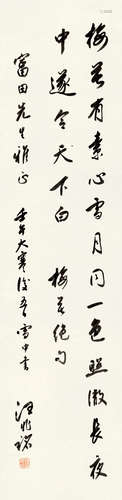 梅花有素心雪月同一色照澈長夜
中遂令天下白 梅花絕句
富田先生雅正 壬午大寒後 雪中書
汪兆銘